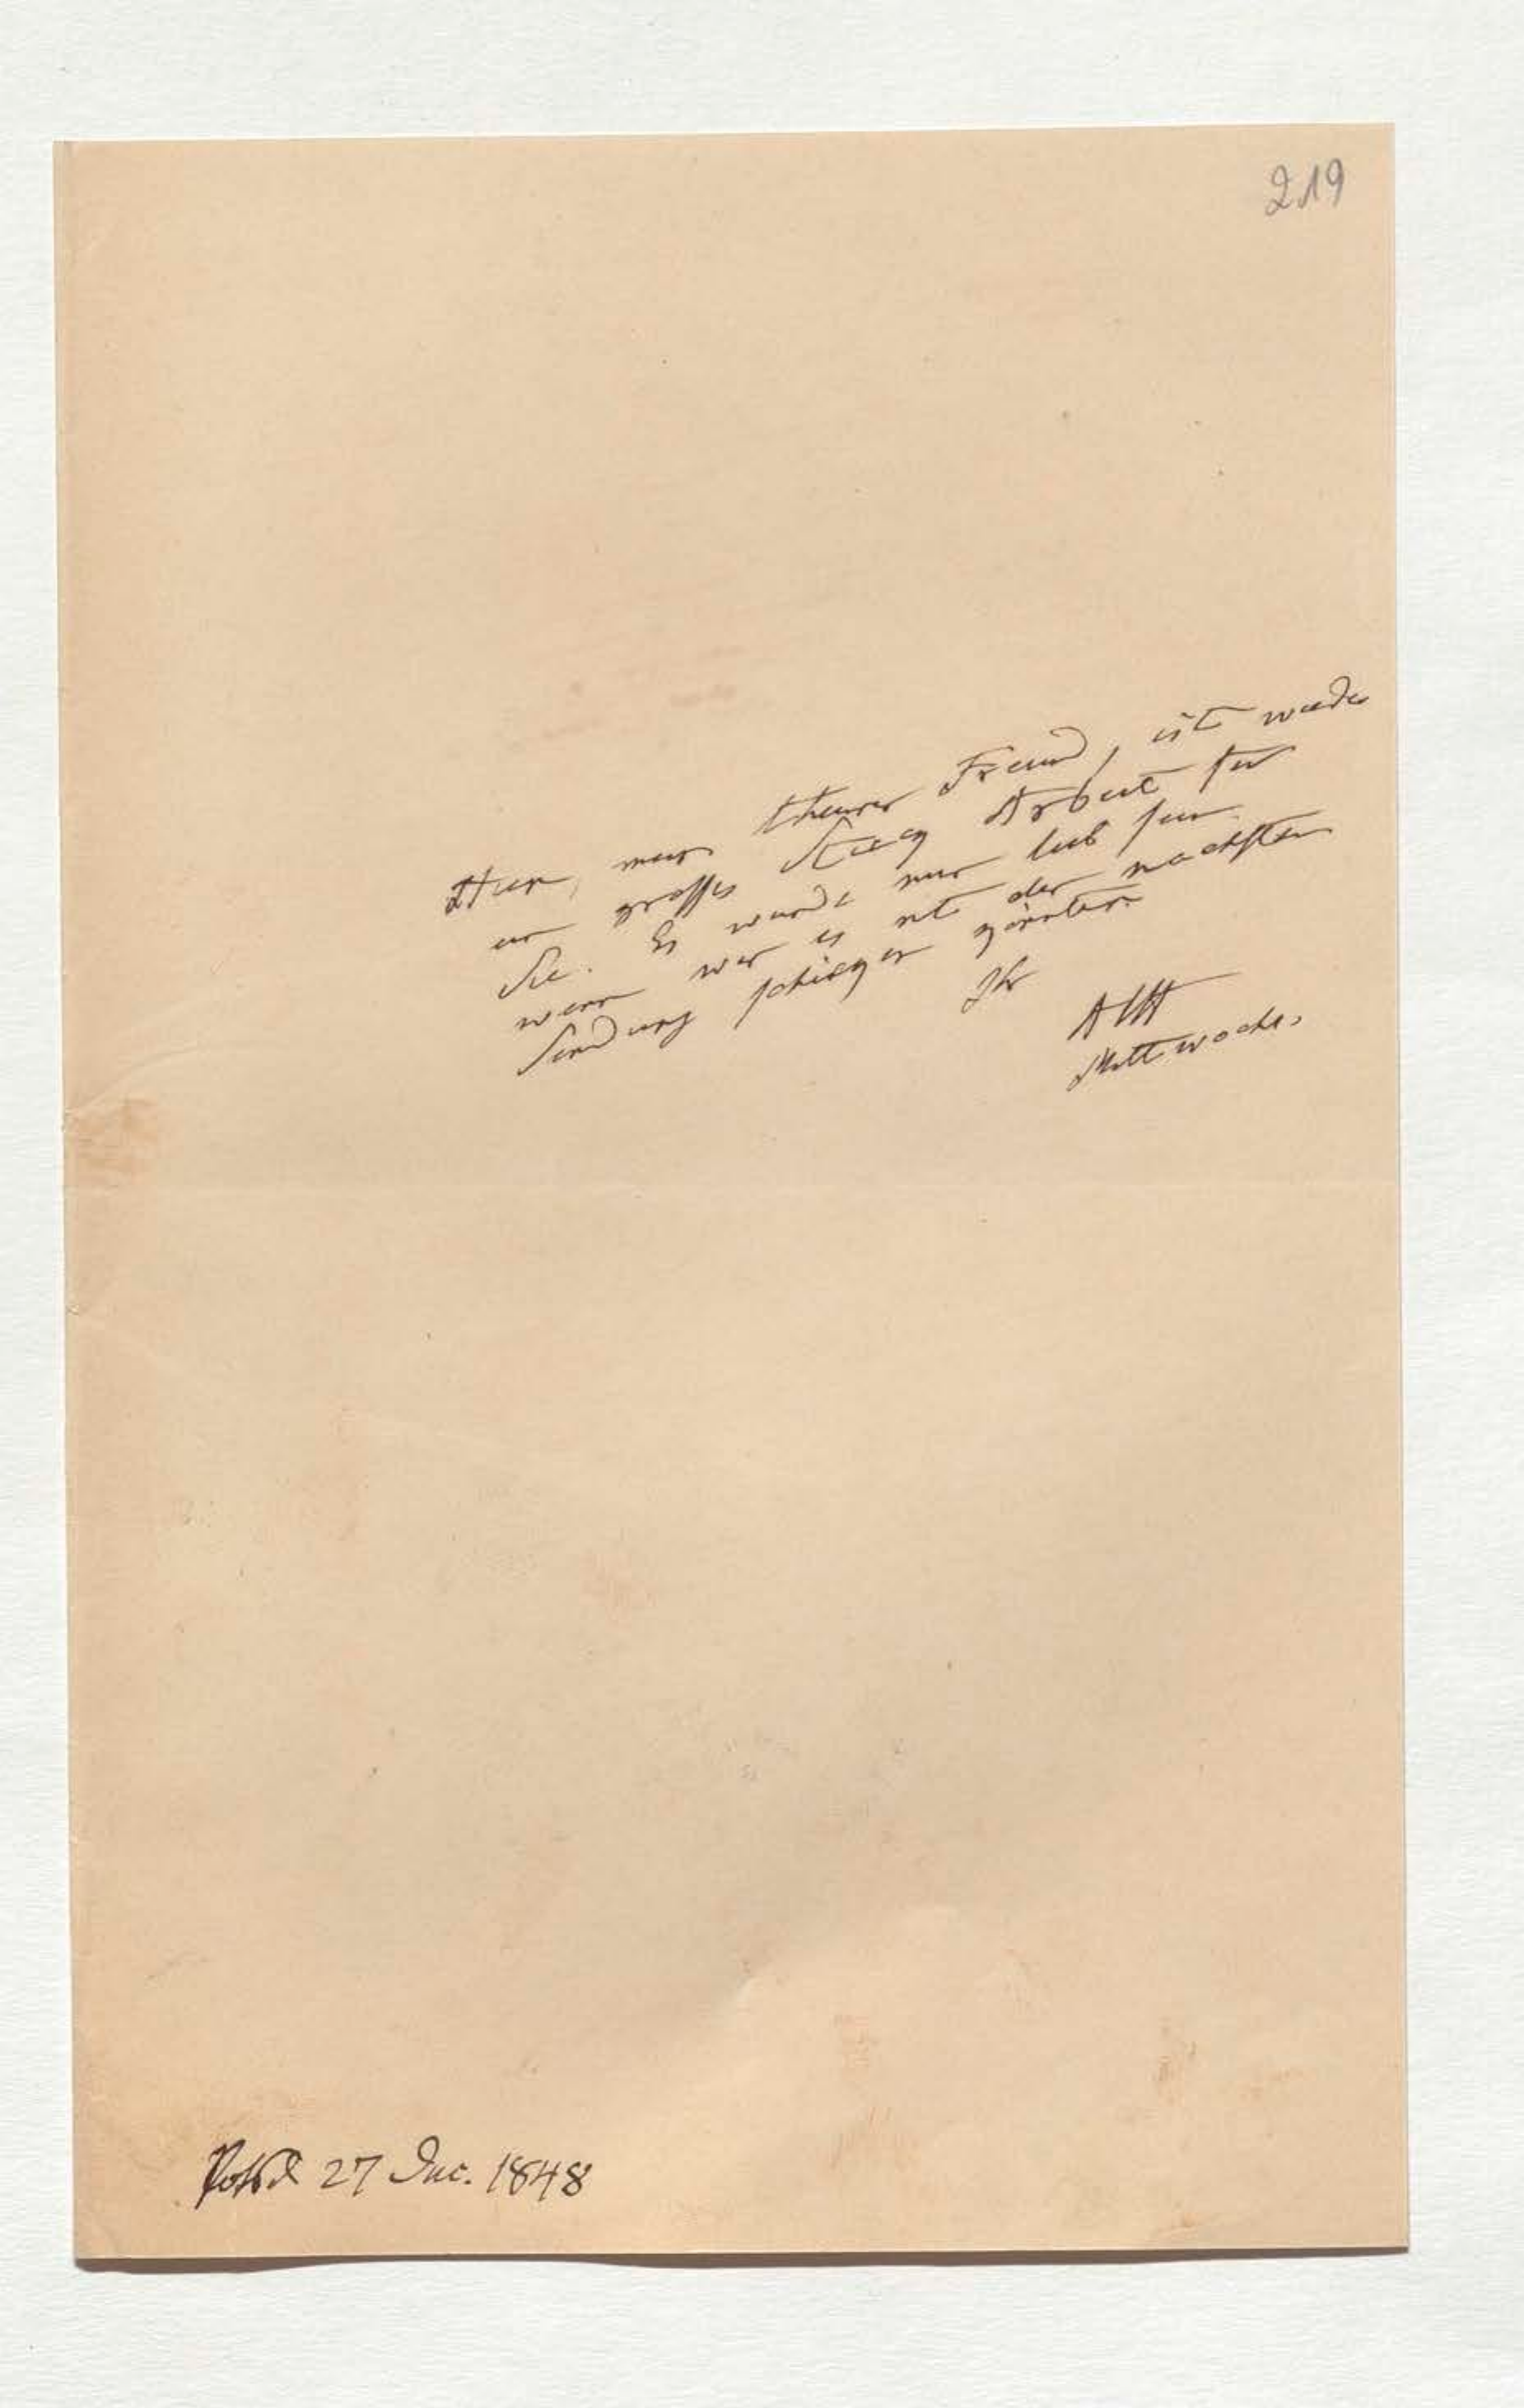 219
Hier, mein theurer Freund, ist wieder
ein grosses Stück Arbeit für
Sie. Es würde mir lieb sein
wenn wir es mit der nächsten
Sendung schicken könnten.
Ihr
AHt
Mittwochs.
27 Dec. 1848